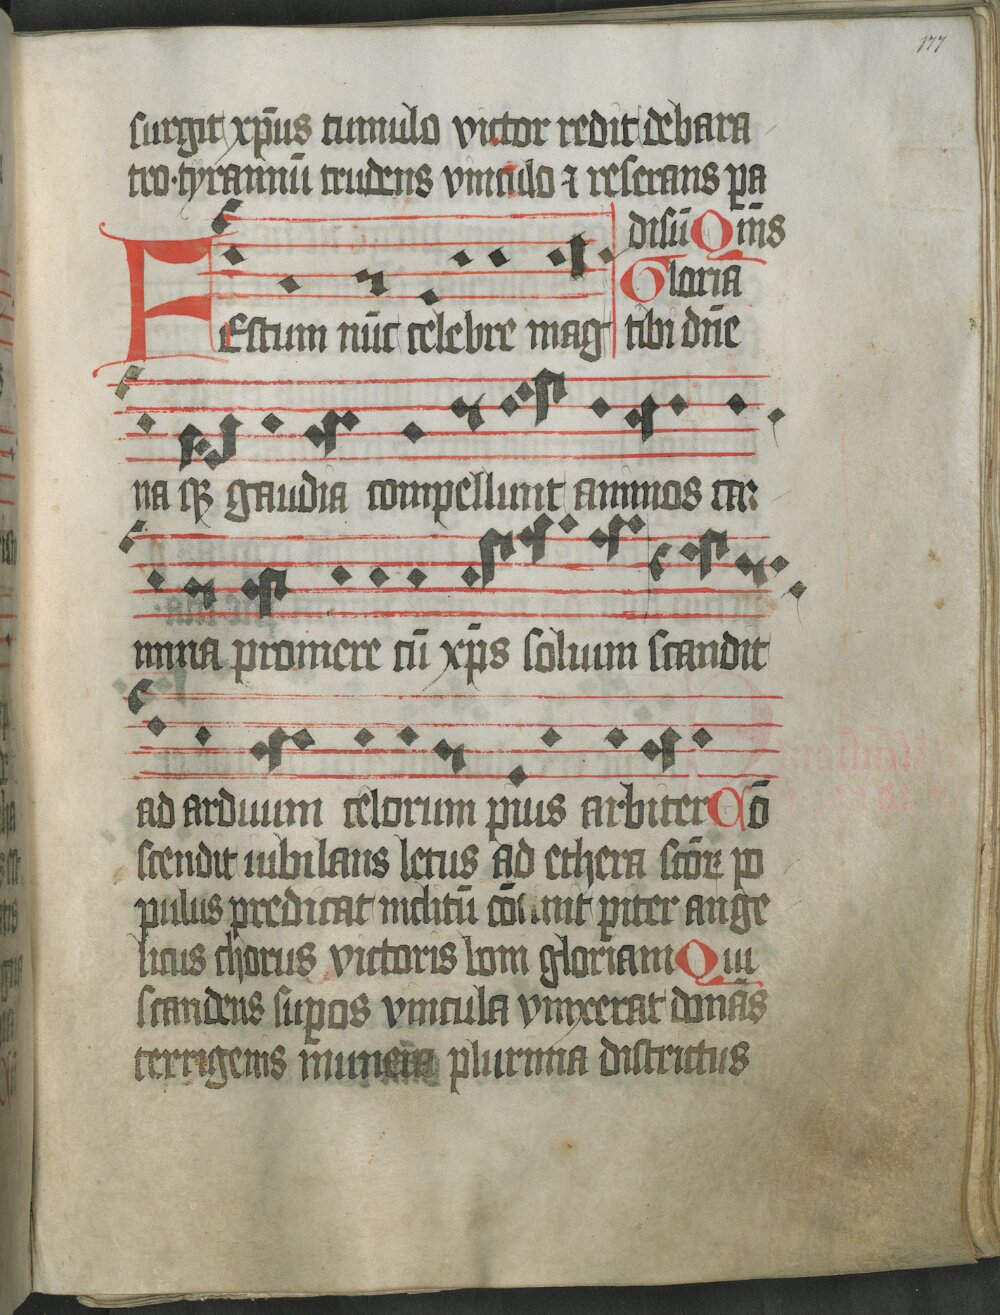 177
surgit xp̄us tumulo victor redit de bara
tro · tyrannū trudens vinculo ⁊ reserans pa
disū Qm̄s
Gloria
tibi dn̄e
FEstum nūc celebre mag
na qꝫ gaudia compellunt animos car
mina promere cū xp̄s solium scandit
ad arduum celorum pius arbiter Cō
scendit iubilans letus ad ethera sc̄oꝝ po
pulus predicat inclitū cō nit piter ange
licus chorus victoris boni gloriam Qui
scandens supos vincula vinxerat donās
terrigenis munera plurima districtus